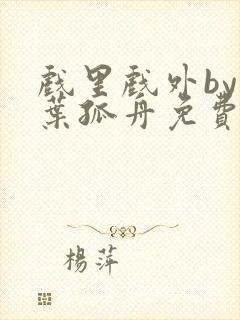 戲里戲外by
葉孤舟免費
楊萍